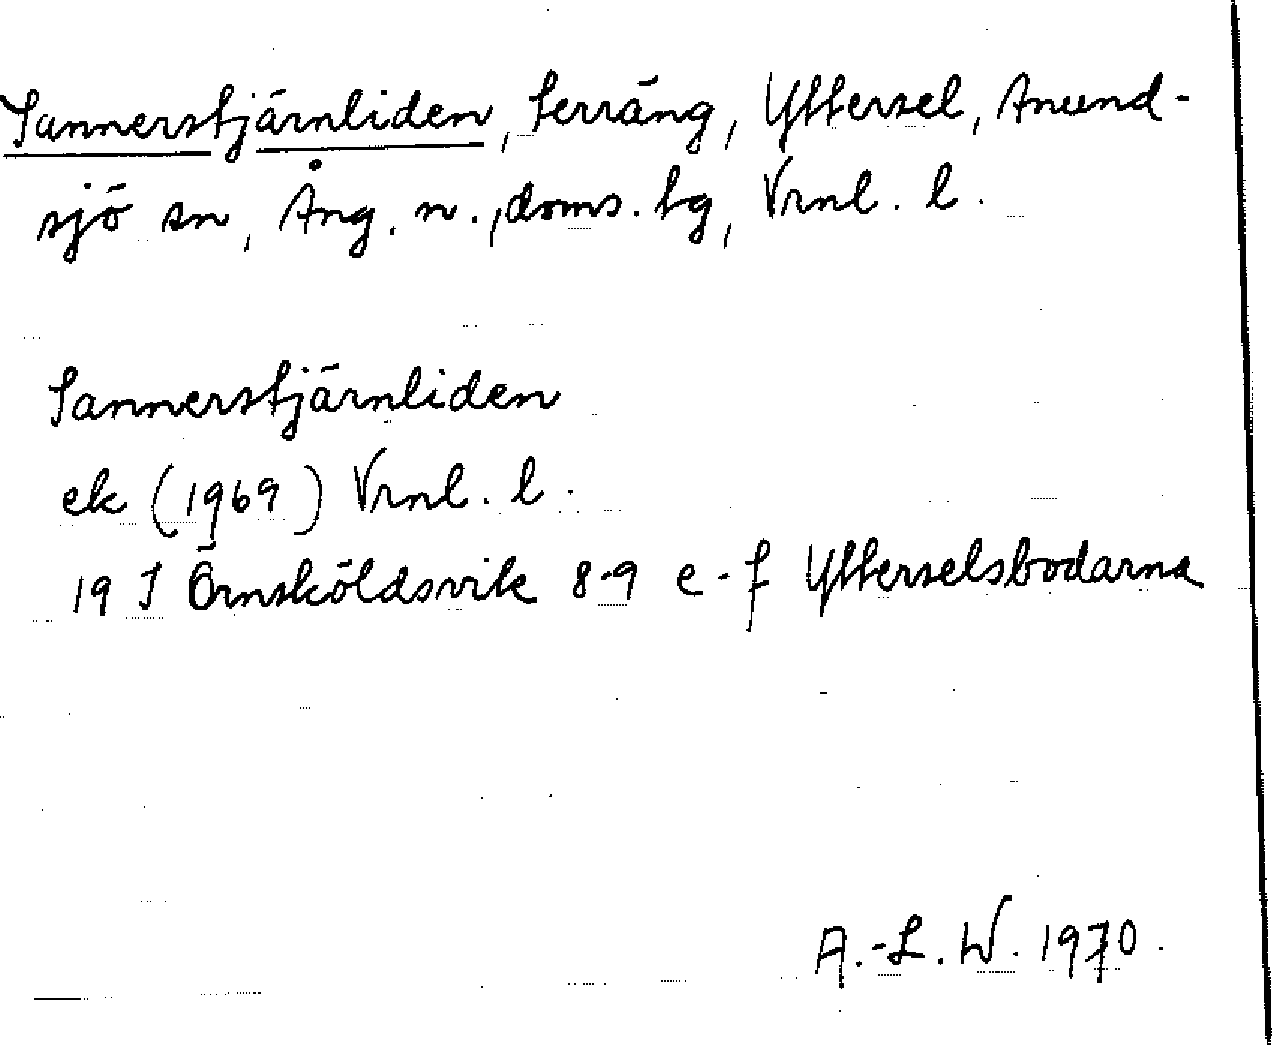 Sannerstjärnliden, terräng, Yttersel, Anund-
sjö sn, Ång. n., doms. tg, Vrnl. l.
Sannerstjärnliden
ek (1969) Vrnl. l.
19 I Örnsköldsvik 8-9 e-f Ytterselsbodarna
A.-L. W. 1970.